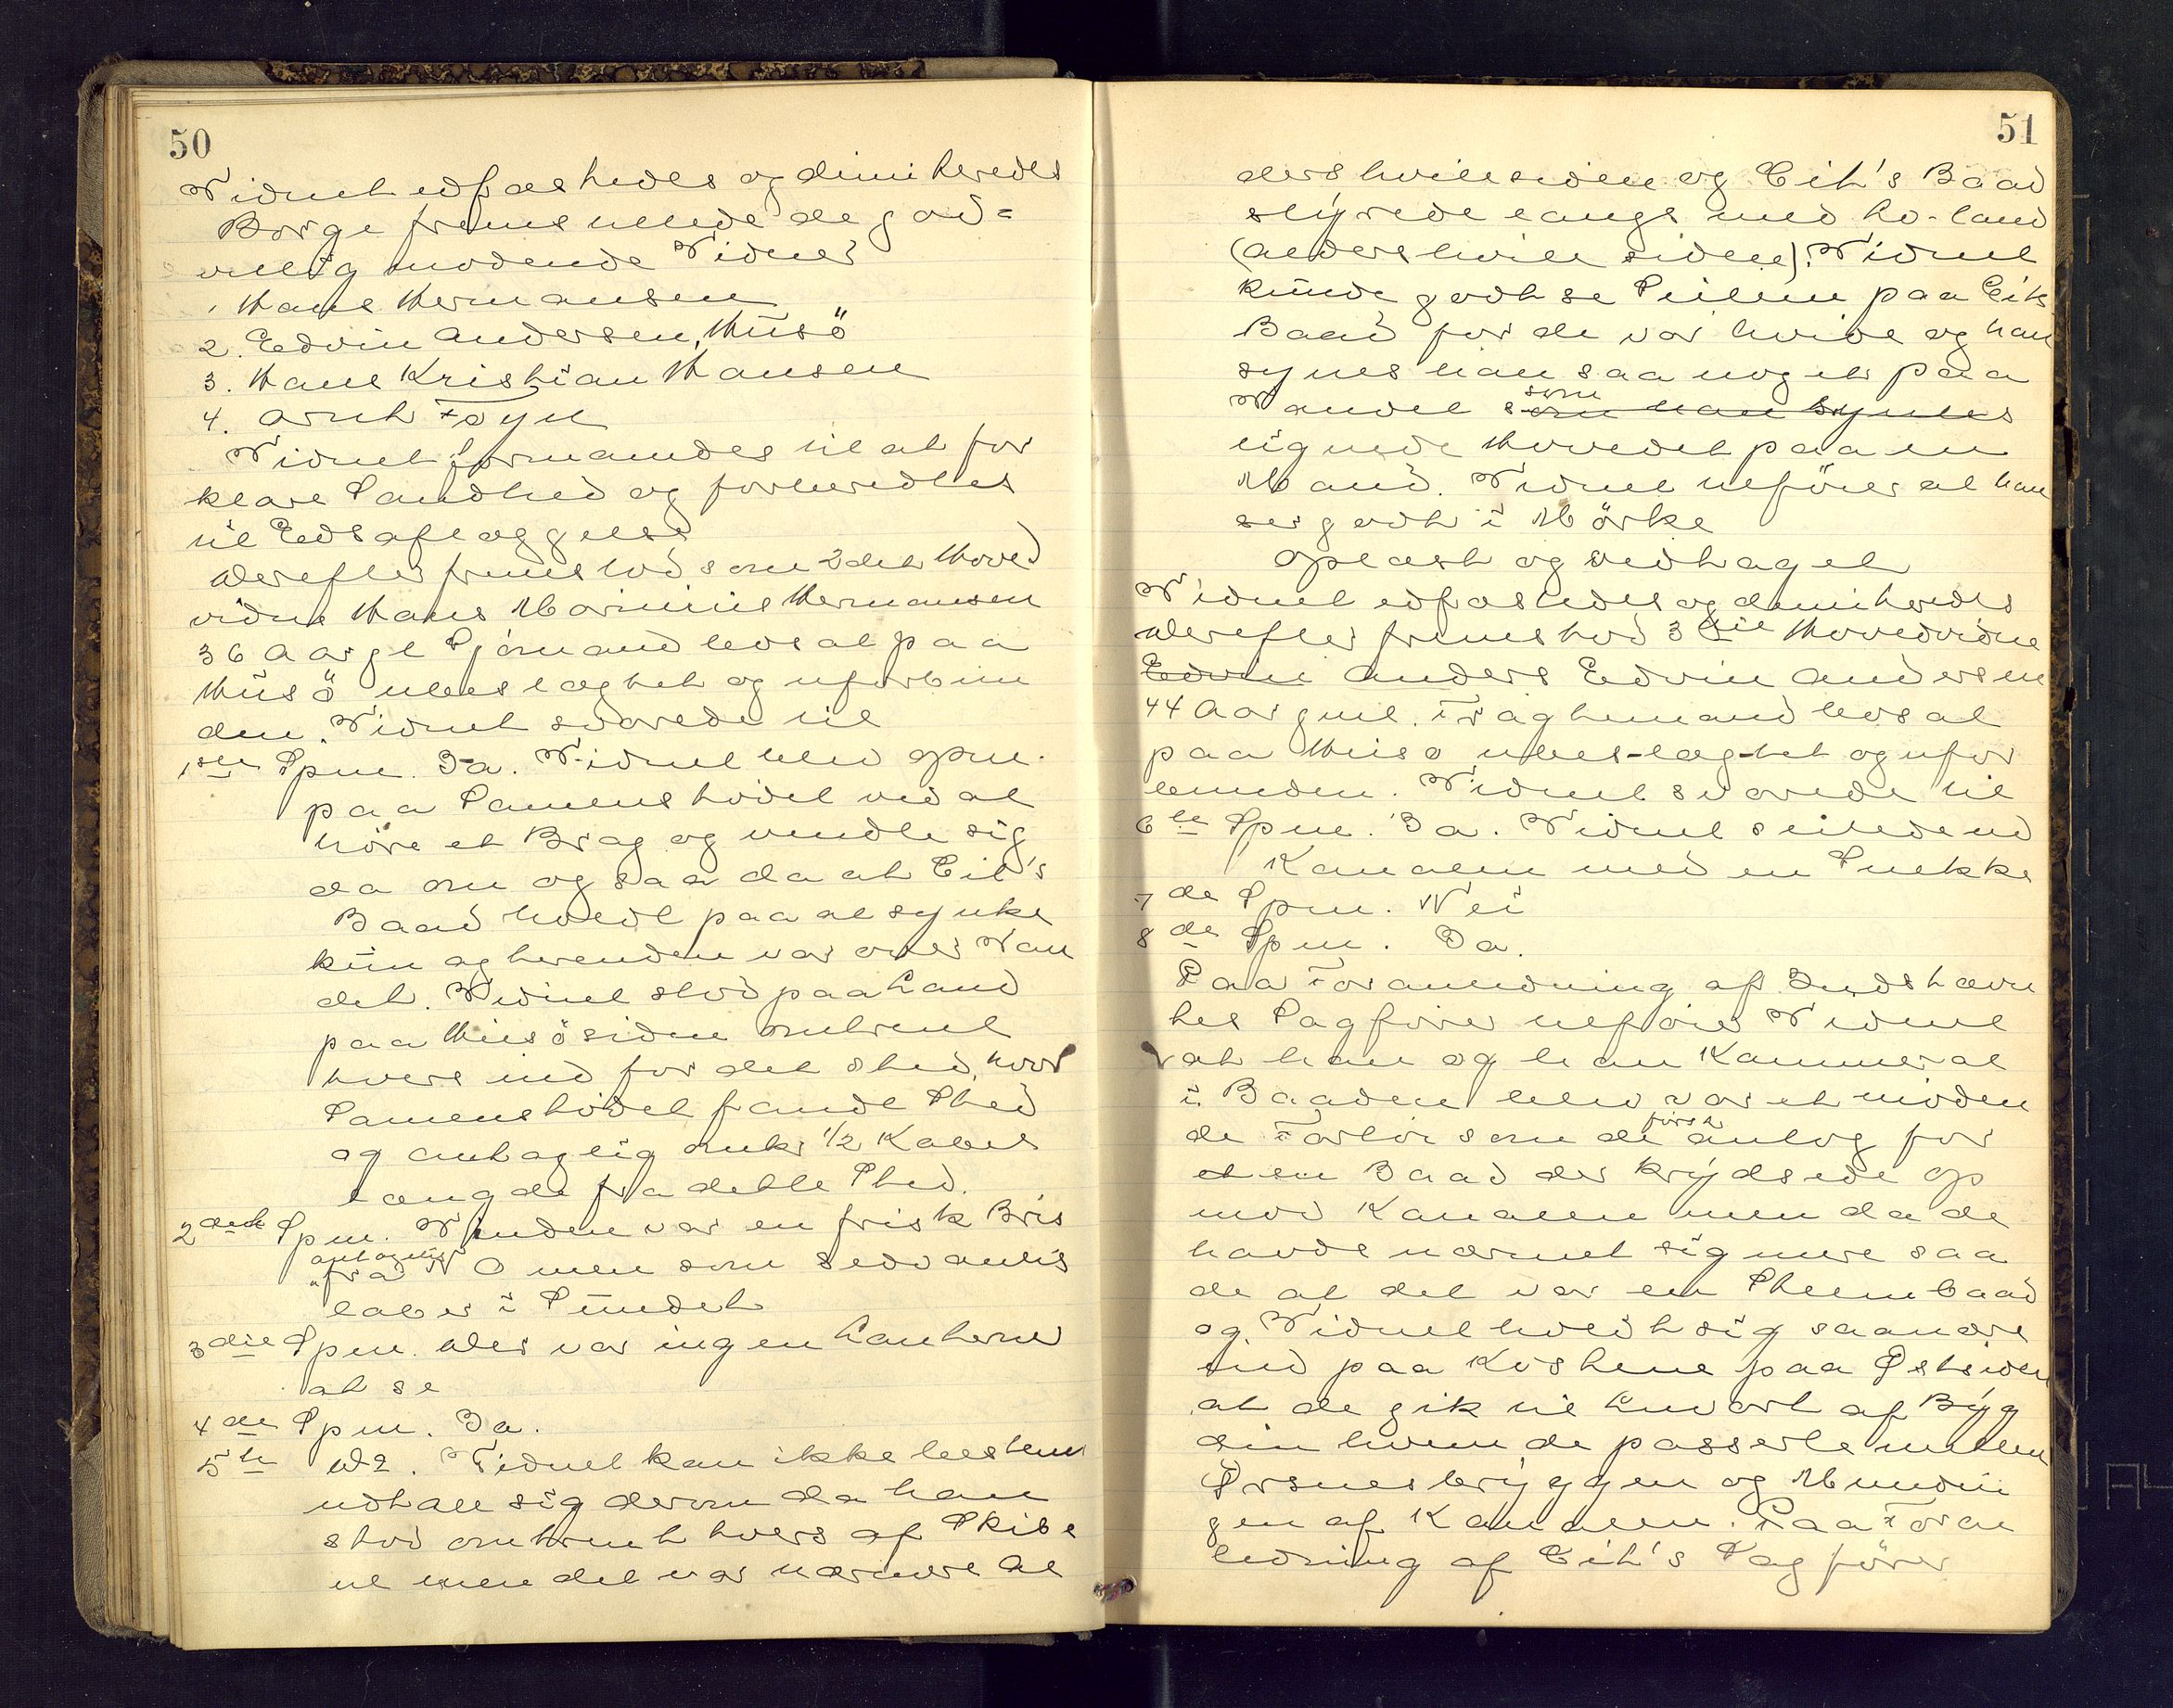 50
Vidnet edfæstedes og dimiteredes
Borge fremstillede de god=
villig mødende Vidner
1 Hans Hermansen
2. Edvin Andersen, Husö
3. Hans Kristian Hansen
4. Arnt Føyn
Vidnet formanedes til at for
klare Sandhed og forberedtes
til Edsaflæggelse
Derefter fremstod som 2det Hoved
vidne Hans Marinius Hermansen
36 Aar gl Sjömand bosat paa
Husö ubeslægtet og uforbun
den. Vidnet svarede til
1ste Spm. Ja. Vidnet blev opm.
paa Sammenstødet ved at
höre et Brag og vendte sig
da om og saa da at Eik's
Baad holdt paa at synke
kun agterenden var over Van
det. Vidnet stod paa Land
paa Husösiden omtrent
tvers ind for det sted, hvor
Sammenstödet fandt Sted
og antagelig omkr 1/2 Kabel
længde fra dette Sted.
2det Spm. Vinden var en frisk Bris
antagelig
fra V O men som sedvanlig
laber i Sundet
3die Spm. Der var ingen Lanterner
at se
4de Spm. Ja.
5te Do. Vidnet kan ikke bestemt
udtale sig derom da han
stod omtrent tvers af Skibe
ne men det var nærmere Al
51
dershvilesiden og Eik's Baad
styrede langs med Lo-land
(Aldershvile siden). Vidnet
kunde godt se Seilene paa Eiks
Baad for de var hvide og han
synes han saa noget paa
som
Vandet som han syntes
lignede Hovedet paa en
Mand. Vidnet tilföier at han
ser godt i Mörke
Oplæst og vedtaget
Vidnet edfæstedes og dimiteredes
Derefter fremstod 3die Hovedvidne
Edvin Anders Edvin Andersen
44 Aar gml. Fragtemand bosat
paa Husø ubes-læg-tet og ufor
bunden. Vidnet svarede til
6te Spm. Ja. Vidnet seilede ud
Kanalen med en Snekke
7de Spm. Nei
8de Spm. Ja.
Paa Foranledning af Indstævn
tes Sagfører tilføier Vidnet
at han og han Kammerat
i Baaden blev var et møden
först
de Fartöi som de antog for
et en Baad der krydsede op
mod Kanalen men da de
havde nærmet sig mere saa
de at det var en Steembaad
og Vidnet holdt sig saa nære
ind paa Kosterne paa Østsiden
at de gik til Luvart af Byg
din hvem de passerte mellem
Ørsnesbryggen og Mundin
gen af Kanalen. Paa Foran
ledning af Eik's Sagfører